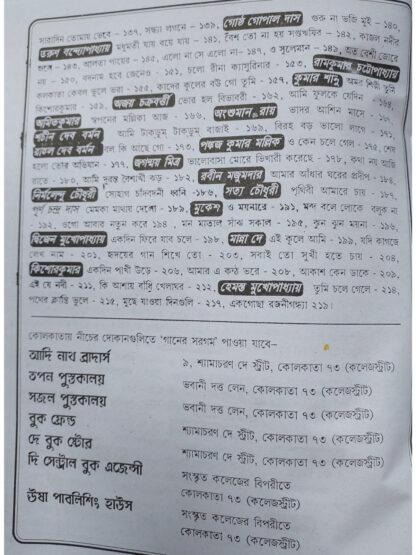 সারাদিন তোমায় ভেবে - ১৩৭, সন্ধ্যা লগনে - ১৩৯, গোষ্ঠ গোপাল দাস গুরু না ভজি মুই - ১৪০,
তরুণ বন্দ্যোপাধ্যায় মধুমতী যায় বয়ে যায় - ১৪১, বৈশ তো না হয় সপ্তঋষির - ১৪২, কাজল নদীর
জলে - ১৪৩, আলতা পায়ের - ১৪৫, এলো না সে এলো না - ১৪৭, ও সুলেমান - ১৪৯, অত বেশী জোরে
না - ১৫০, বদনাম হবে জেনেও - ১৫১, চলো রীনা ক্যাসুরিনার - ১৫৩, রামকুমার চট্টোপাধ্যায়
কলকাতা কেবল ভুলে ভরা - ১৫৫, কাদের কূলের বউ গো তুমি - ১৫৭, কুমার শানু অমর শিল্পী তুমি
কিশোরকুমার - ১৫৯, অজয় চক্রবর্তী ভোর হল বিভাবরী - ১৬২, আমি ফুলকে যেদিন - ১৬৮,
অমিতকুমার স্বপনের মল্লিকা আজ - ১৬৬, অংশুমান রায় ভাদর আশিন মাসে -
শচীন দেব বর্মন আমি টাকডুম টাকডুম বাজাই - ১৬৯, বিরহ বড় ভালো লাগে - ১৭১,
রাহুল দেব বর্মন বল কি আছে গো - ১৭৩, পঙ্কজ কুমার মল্লিক ও কেন চলে গেল - ১৭৫, শেষ
হলো তোর অভিযান - ১৭৭, জগন্ময় মিত্র ভালোবাসা মোরে ভিখারী করেছে - ১৭৮, কথা নয় আজি
রাতে - ১৮০, আমি দুরন্ত বৈশাখী ঝড় - ১৮২, রবীন মজুমদার আমার আঁধার ঘরের প্রদীপ - ১৮৪,
নির্মলেন্দু চৌধুরী সোহাগ চাঁদবদনী ধ্বনি - ১৮৬, সত্য চৌধুরী পৃথিবী আমারে চায় - ১৮৭,
পূর্ণ চন্দ্র দাস মেমকা মাথায় দেলো - ১৮৯, মুকেশ ও ময়নারে - ১৯১, মন্দ বলে লোকে বলুক না
- ১৯২, ওগো আবার নতুন করে - ১৯৪, মন মাতাল সাঁঝ সকাল - ১৯৫, ঝুন ঝুন ময়না - ১৯৬,
দ্বিজেন মুখোপাধ্যায় একদিন ফিরে যাব চলে - ১৯৮, মান্না দে এই কূলে আমি - ১৯৯, যদি কাগজে
লেখ নাম - ২০১, হৃদয়ের গান শিখে তো - ২০৩, সবাই তো সুখী হতে চায় - ২০৪,
কিশোরকুমার একদিন পাখী উড়ে - ২০৬, আমার এ কণ্ঠ ভরে - ২০৮, আকাশ কেন ডাকে - ২০৯,
এই যে নদী - ২১১, কি আশায় বাঁধি খেলাঘর - ২১২, হেমন্ত মুখোপাধ্যায় তুমি চলে গেলে - ২১৪,
পথের ক্লান্তি ভুলে - ২১৫, মুছে যাওয়া দিনগুলি - ২১৭, একগোছা রজনীগন্ধা ২১৯।
কোলকাতায় নীচের দোকানগুলিতে 'গানের সরগম' পাওয়া যাবে—
আদি নাথ ব্রাদার্স ৯, শ্যামাচরণ দে স্ট্রীট, কোলকাতা ৭৩ (কলেজস্ট্রীট)
তপন পুস্তকালয় ভবানী দত্ত লেন, কোলকাতা ৭৩ (কলেজস্ট্রীট)
সজল পুস্তকালয় ভবানী দত্ত লেন, কোলকাতা ৭৩ (কলেজস্ট্রীট)
বুক ফ্রেন্ড শ্যামাচরণ দে স্ট্রীট, কোলকাতা ৭৩ (কলেজস্ট্রীট)
দে বুক ষ্টোর শ্যামাচরণ দে স্ট্রীট, কোলকাতা ৭৩ (কলেজস্ট্রীট)
দি সেন্ট্রাল বুক এজেন্সী সংস্কৃত কলেজের বিপরীতে
কোলকাতা ৭৩ (কলেজস্ট্রীট)
ঊষা পাবলিশিং হাউস সংস্কৃত কলেজের বিপরীতে
কোলকাতা ৭৩ (কলেজস্ট্রীট)